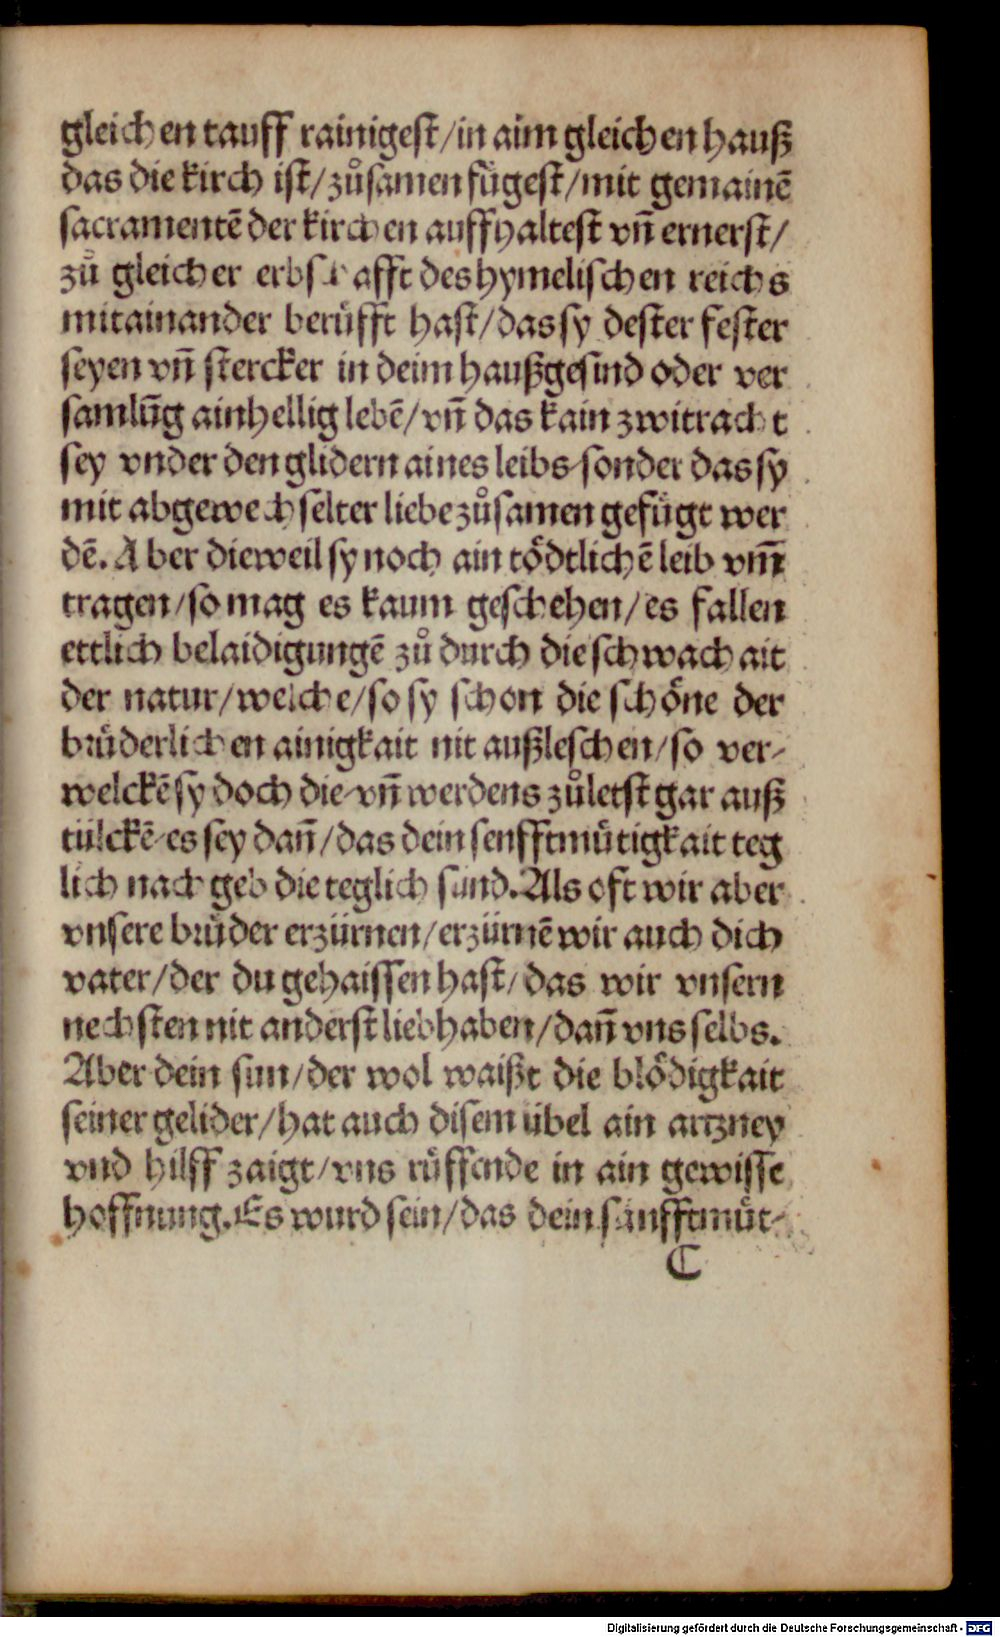 gleichen tauff rainigest/in aim gleichen hauß
das die kirch ist/zůsamen fügest/mit gemainẽ
sacramentẽ der kirchen auffhaltest vñ ernerst/
zů gleicher erbschafft des hymelischen reichs
mitainander berůfft hast/das sy dester fester
seyen vñ stercker in deim haußgesind oder ver
samlũg ainhellig lebẽ/vñ das kain zwitracht
sey vnder den glidern aines leibs/sonder das sy
mit abgewechselter liebe zůsamen gefügt wer
dẽ. Aber dieweil sy noch ain tödtlichẽ leib vmb
tragen/so mag es kaum geschehen/es fallen
ettlich belaidigungẽ zů durch die schwachait
der natur/welche/so sy schon die schöne der
brüderlichen ainigkait nit außleschen/so ver-
welckẽ sy doch die/vñ werdens zůletst gar auß
tülckẽ/es sey dañ/das dein senfftmütigkait teg
lich nach geb die teglich sünd. Als oft wir aber
vnsere brüder erzürnen/erzürnẽ wir auch dich
vater/der du gehaissen hast/das wir vnsern
nechsten nit anderst liebhaben/dañ vns selbs.
Aber dein sun/der wol waißt die blödigkait
seiner gelider/hat auch disem übel ain artzney
vnd hilff zaigt/vns rüffende in ain gewisse
hoffnung. Es wurd sein/das dein sänfftmüt-
C
Digitalisierung gefördert durch die Deutsche Forschungsgemeinschaft - DFG